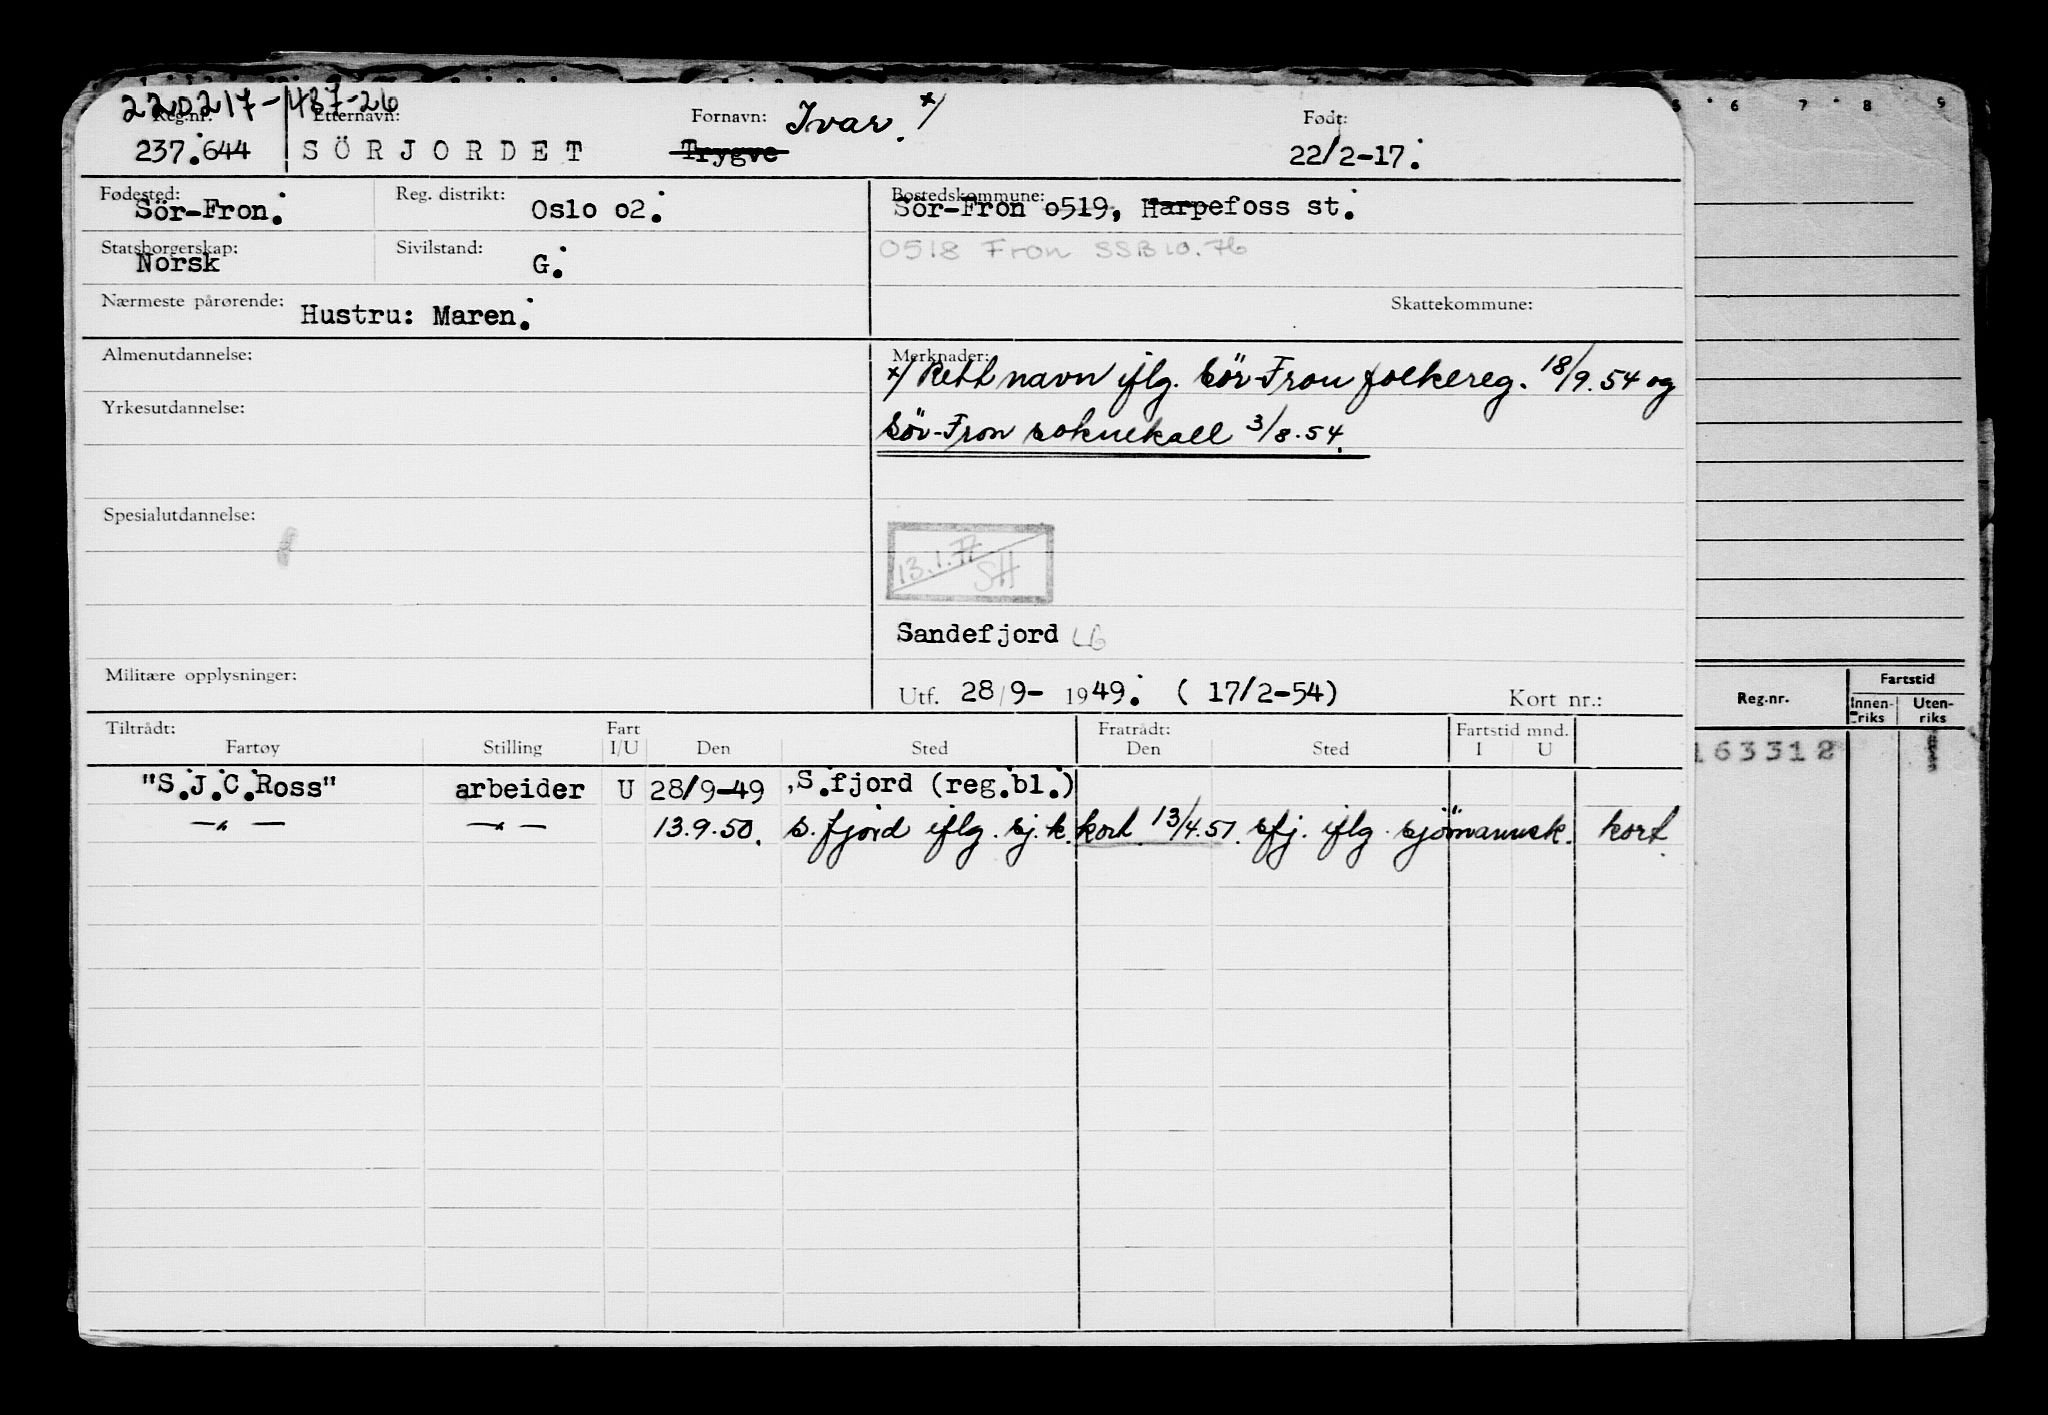 220217-48726
Reg.nr. Etternavn: Fornavn: Ivar. x/ Født:
237.644 SÖRJORDET Trygve 22/2-17.
Fødested: Reg. distrikt: Bostedskommune:
Sör-Fron. Oslo 02. Sör-Fron 0519, Harpefoss st.
Statsborgerskap: Sivilstand: 0518 Fron SSB 10.76
Norsk G.
Nærmeste pårørende: Skattekommune:
Hustru: Maren.
Almenutdannelse: Merknader:
x/ Rett navn iflg. Sör-Fron folkereg. 18/9.54 og
Yrkesutdannelse:
Sör-Fron soknekall 3/8.54.
Spesialutdannelse:
13.1.77
SH
Sandefjord LG
Militære opplysninger:
Utf. 28/9- 1949. ( 17/2-54) Kort nr.:
Tiltrådt: Fart Fratrådt: Fartstid mnd.
Fartøy Stilling I/U Den Sted Den Sted I U
"S.J.C.Ross" arbeider U 28/9-49 S.fjord (reg.bl.)
—"— —"— 13.9.50. S.fjord iflg. sj.k.kort 13/4.51. Sfj. iflg. sjömannsk. kort.
5 6 7 8 9
Fartstid
Reg.nr. Innen-riks Uten-riks
163312